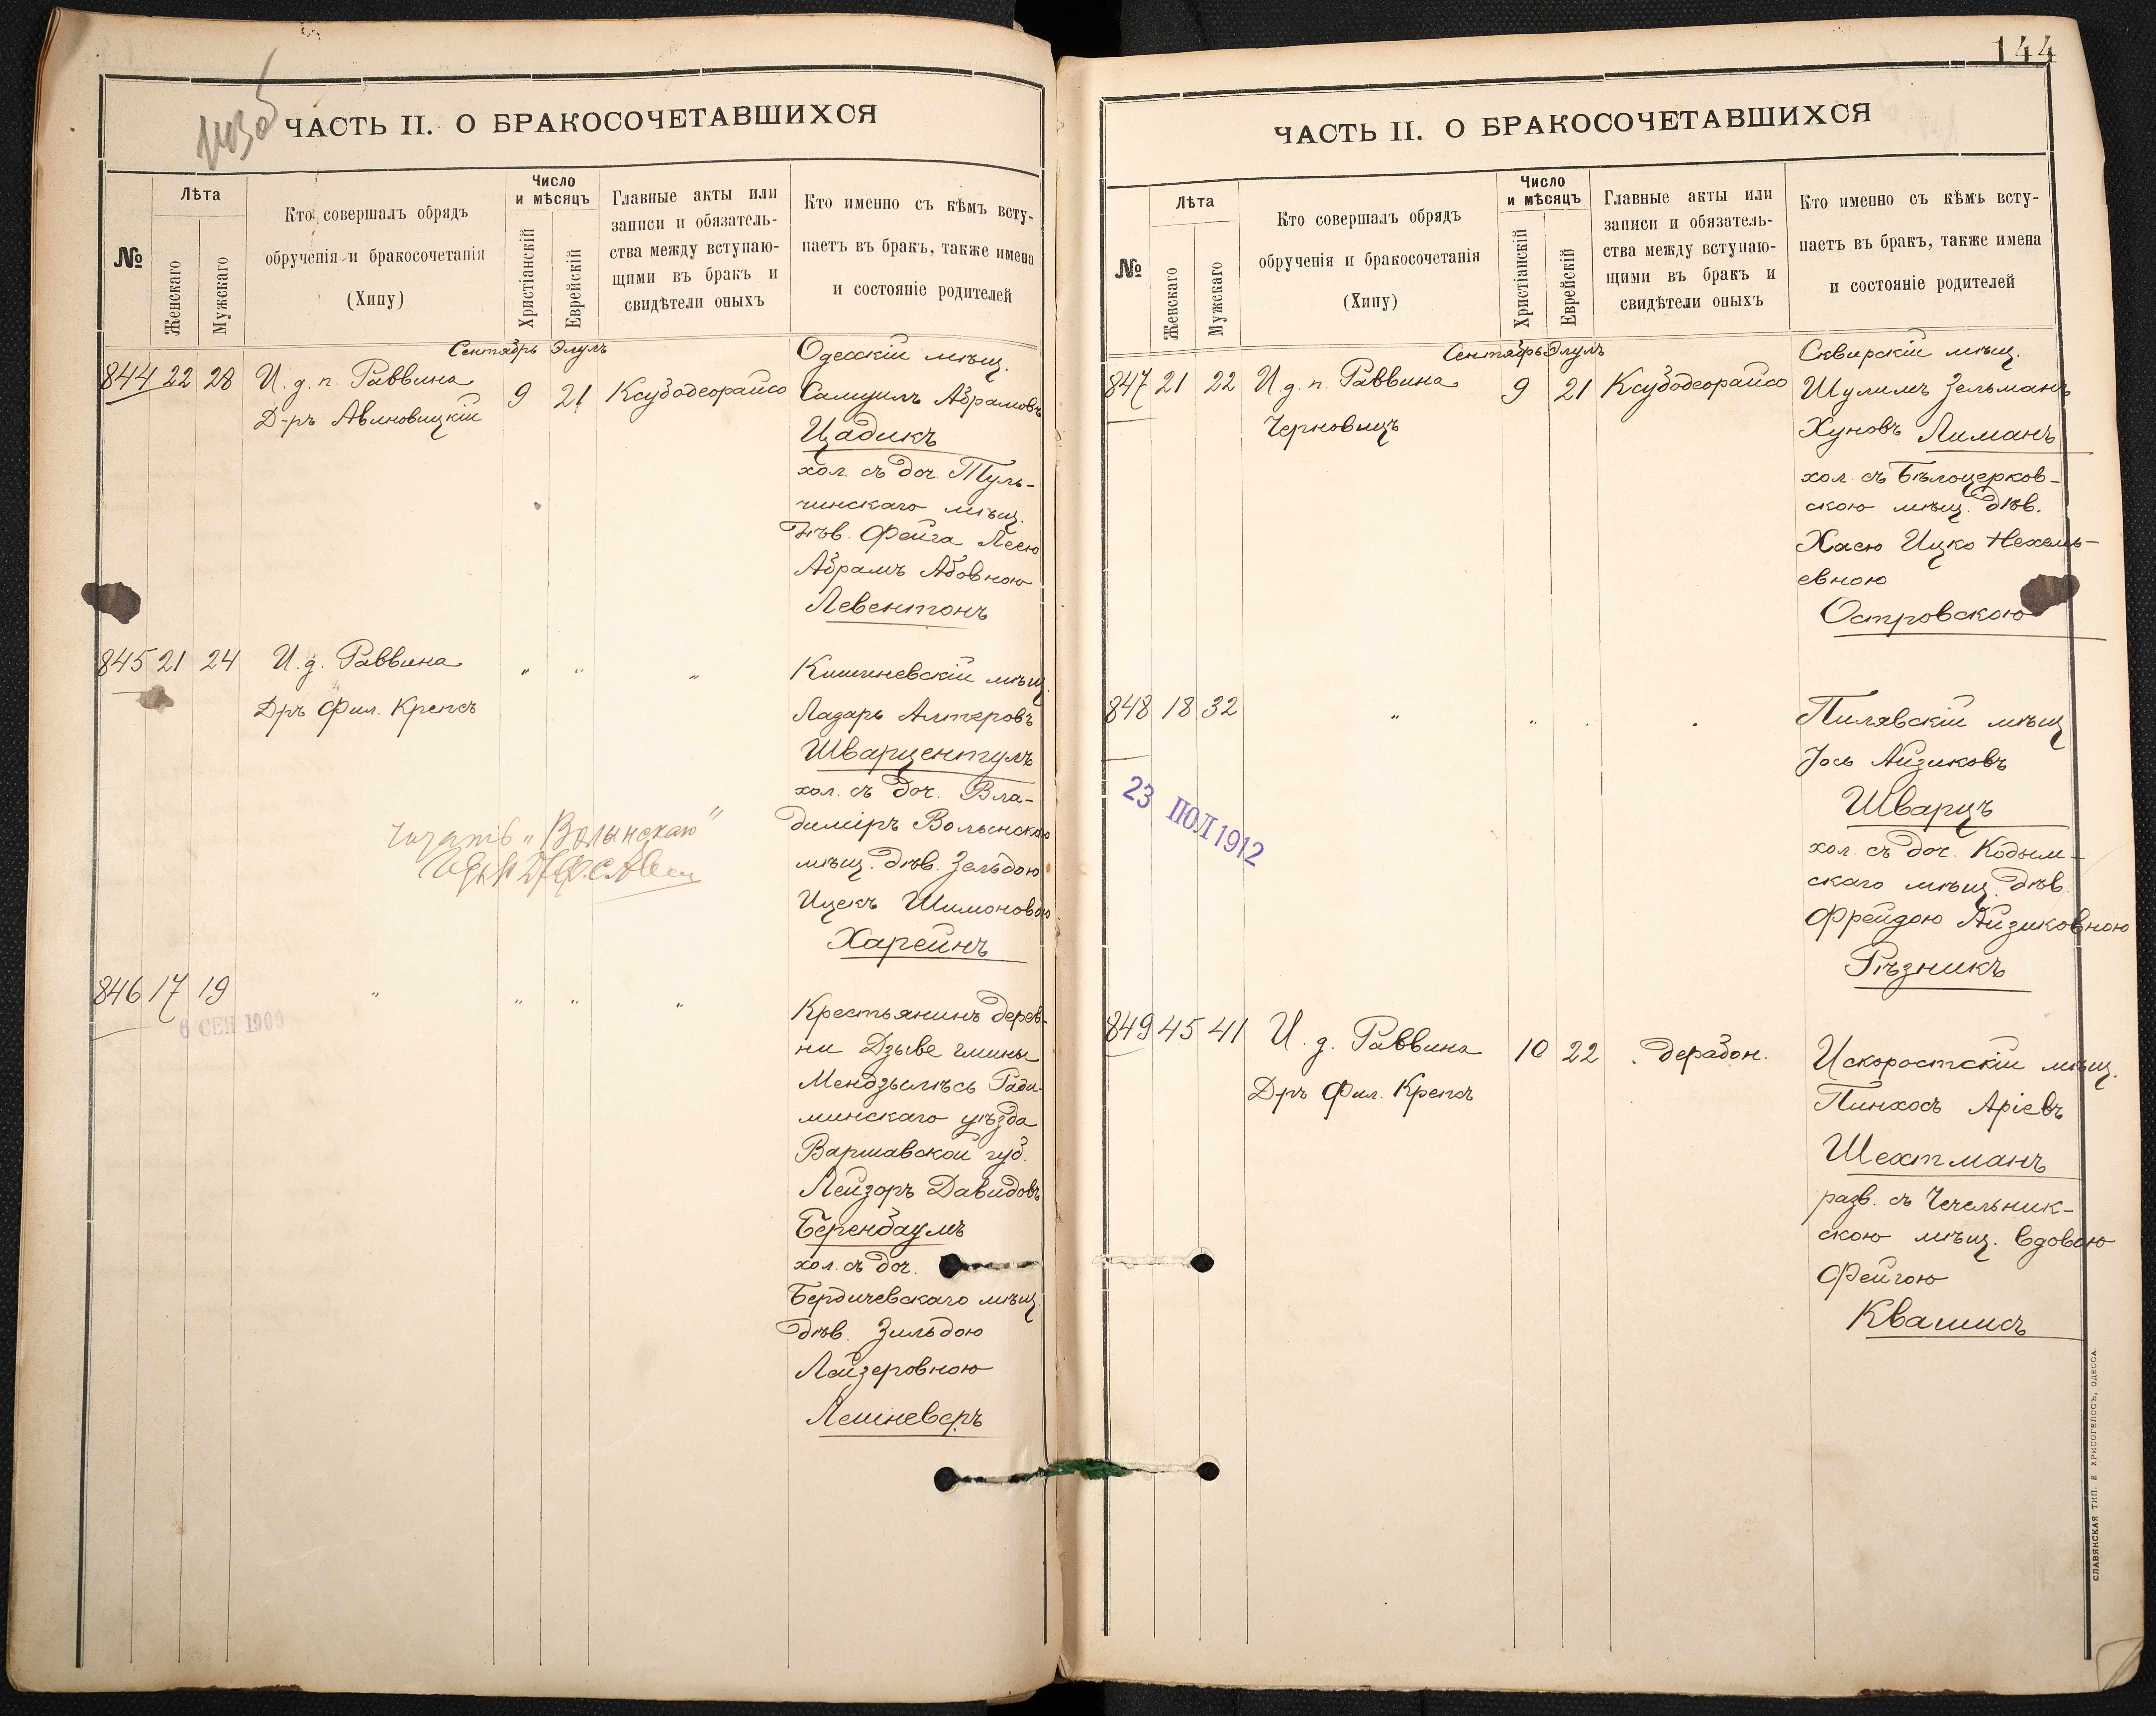 ЧАСТЬ II. О БРАКОСОЧЕТАВШИХСЯ
№
Лѣта
Женскаго
Мужскаго
Кто совершалъ обрядъ
обрученія и бракосочетанія
(Хипу)
Число
и мѣсяцъ
Христіанскій
Еврейскій
Главные акты или
записи и обязатель-
ства между вступаю-
щими въ бракъ и
свидѣтели оныхъ
Кто именно съ кѣмъ всту-
паетъ въ бракъ, также имена
и состояніе родителей
Сентябрь Элулъ
844 22 28
И. д. п. Раввина
Д-ръ Авиновицкій
9 21
Ксубодеорайсо
Одесскій мѣщ.
Самуилъ Абрамовъ
Цадикъ
хол. съ доч. Туль-
чинскаго мѣщ.
дѣв. Фейга Леею
Абрамъ Абовною
Левентонъ
845 21 24
И. д. Раввина
Дръ Фил. Крепсъ
" " "
Кишиневскій мѣщ.
Лазарь Алтеровъ
Шварцентулъ
хол. съ доч. Вла-
диміръ Волынскою
мѣщ. дѣв. Зельдою
Ицекъ Шимоновою
Харейнъ
"Волынскаго"
846 17 19
" " " "
6 СЕН 1900
Крестьянинъ дерев-
ни Дзыве гмины
Мендзылѣсь Ради-
минскаго уѣзда
Варшавской губ.
Лейзоръ Давидовъ
Беренбаумъ
хол. съ доч.
Бердичевскаго мѣщ.
дѣв. Зильдою
Лейзеровною
Лешневеръ
144
ЧАСТЬ II. О БРАКОСОЧЕТАВШИХСЯ
№
Лѣта
Женскаго
Мужскаго
Кто совершалъ обрядъ
обрученія и бракосочетанія
(Хипу)
Число
и мѣсяцъ
Христіанскій
Еврейскій
Главные акты или
записи и обязатель-
ства между вступаю-
щими въ бракъ и
свидѣтели оныхъ
Кто именно съ кѣмъ всту-
паетъ въ бракъ, также имена
и состояніе родителей
Сентябрь Элулъ
847 21 22
И. д. п. Раввина
Черновицъ
9 21
Ксубодеорайсо
Сквирскій мѣщ.
Шулимъ Зельманъ
Хуновъ Лиманъ
хол. съ Бѣлоцерков-
скою мѣщ. дѣв.
Хасю Ицко Нехемь-
евною
Островскою
848 18 32
" " . .
23 ПОЛ 1912
Пилявскій мѣщ
Іось Айзиковъ
Шварцъ
хол. съ доч. Кодым-
скаго мѣщ. дѣв.
Фрейдою Айзиковною
Рѣзникъ
849 45 41
И. д. Раввина
Дръ Фил. Крепсъ
10 22
дерабон.
Искоростскій мѣщ.
Пинхосъ Аріевъ
Шехтманъ
разв. съ Чечельник-
скою мѣщ. вдовою
Фейгою
Квашисъ
СЛАВЯНСКАЯ ТИП. Е. ХРИСОГЕЛОСЪ, ОДЕССА.